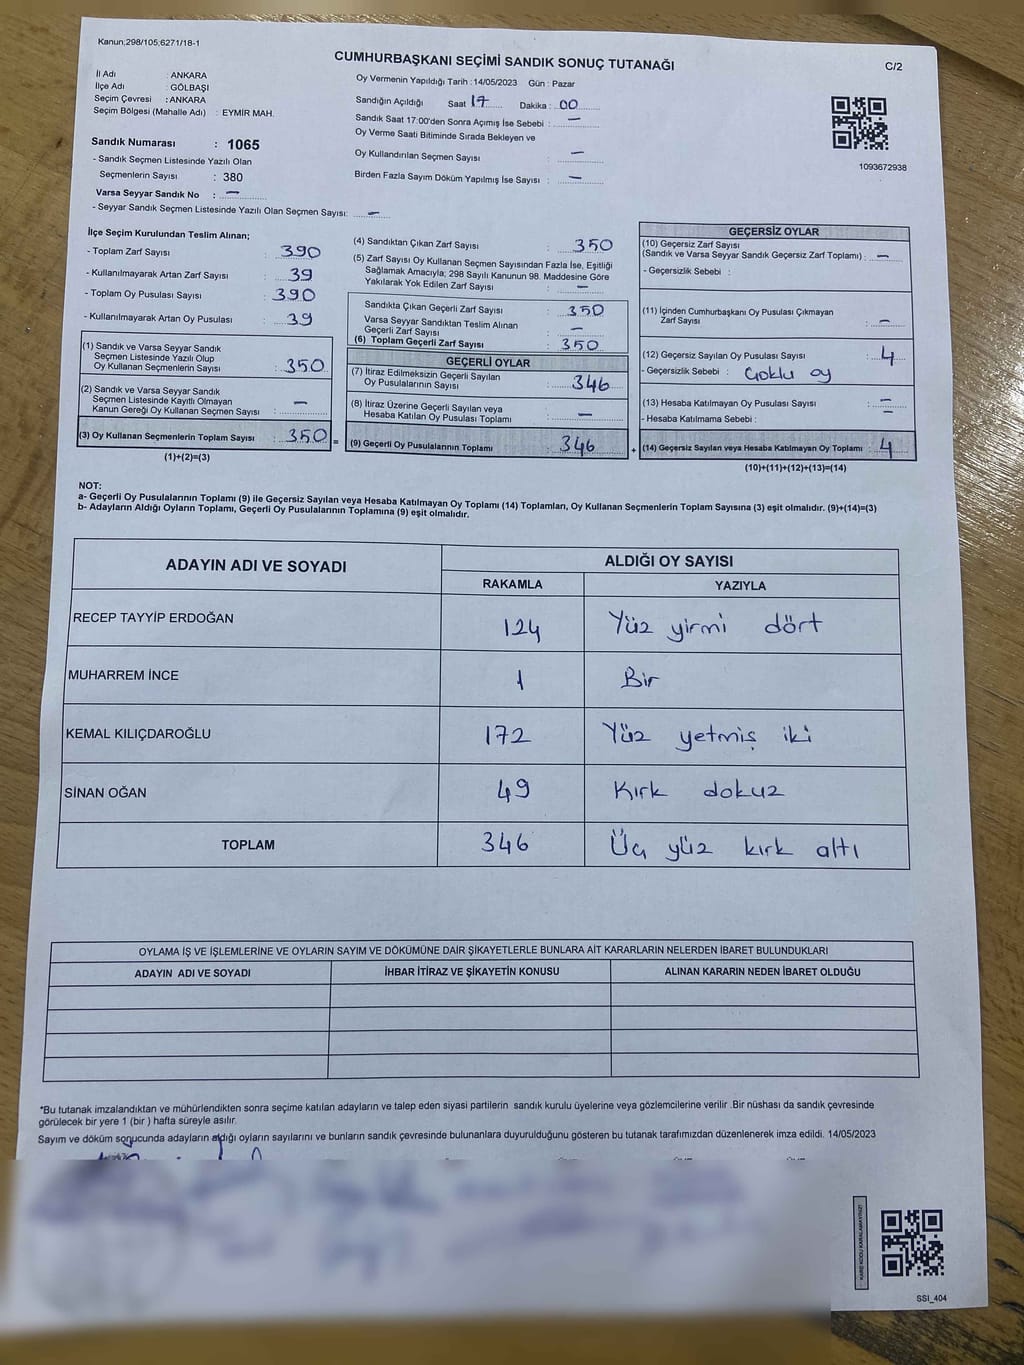 Kanun;298/105;6271/18-1
CUMHURBAŞKANI SEÇİMİ SANDIK SONUÇ TUTANAĞI
C/2
İl Adı : ANKARA
İlçe Adı : GÖLBAŞI
Seçim Çevresi : ANKARA
Seçim Bölgesi (Mahalle Adı) : EYMİR MAH.
Sandık Numarası : 1065
- Sandık Seçmen Listesinde Yazılı Olan
Seçmenlerin Sayısı : 380
Varsa Seyyar Sandık No : —
- Seyyar Sandık Seçmen Listesinde Yazılı Olan Seçmen Sayısı: —
Oy Vermenin Yapıldığı Tarih : 14/05/2023 Gün : Pazar
Sandığın Açıldığı Saat 17 Dakika : 00
Sandık Saat 17:00'den Sonra Açımış İse Sebebi : —
Oy Verme Saati Bitiminde Sırada Bekleyen ve
Oy Kullandırılan Seçmen Sayısı : —
Birden Fazla Sayım Döküm Yapılmış İse Sayısı : —
1093672938
İlçe Seçim Kurulundan Teslim Alınan;
- Toplam Zarf Sayısı : 390
- Kullanılmayarak Artan Zarf Sayısı : 39
- Toplam Oy Pusulası Sayısı : 390
- Kullanılmayarak Artan Oy Pusulası : 39
(1) Sandık ve Varsa Seyyar Sandık
Seçmen Listesinde Yazılı Olup
Oy Kullanan Seçmenlerin Sayısı : 350
(2) Sandık ve Varsa Seyyar Sandık
Seçmen Listesinde Kayıtlı Olmayan
Kanun Gereği Oy Kullanan Seçmen Sayısı : —
(3) Oy Kullanan Seçmenlerin Toplam Sayısı : 350 =
(1)+(2)=(3)
(4) Sandıktan Çıkan Zarf Sayısı : 350
(5) Zarf Sayısı Oy Kullanan Seçmen Sayısından Fazla İse, Eşitliği
Sağlamak Amacıyla; 298 Sayılı Kanunun 98. Maddesine Göre
Yakılarak Yok Edilen Zarf Sayısı : —
Sandıkta Çıkan Geçerli Zarf Sayısı : 350
Varsa Seyyar Sandıktan Teslim Alınan
Geçerli Zarf Sayısı : —
(6) Toplam Geçerli Zarf Sayısı : 350
GEÇERLİ OYLAR
(7) İtiraz Edilmeksizin Geçerli Sayılan
Oy Pusulalarının Sayısı : 346
(8) İtiraz Üzerine Geçerli Sayılan veya
Hesaba Katılan Oy Pusulası Toplamı : —
(9) Geçerli Oy Pusulalarının Toplamı : 346 +
GEÇERSİZ OYLAR
(10) Geçersiz Zarf Sayısı
(Sandık ve Varsa Seyyar Sandık Geçersiz Zarf Toplamı) : —
- Geçersizlik Sebebi :
(11) İçinden Cumhurbaşkanı Oy Pusulası Çıkmayan
Zarf Sayısı : —
(12) Geçersiz Sayılan Oy Pusulası Sayısı : 4
- Geçersizlik Sebebi : Çoklu oy
(13) Hesaba Katılmayan Oy Pusulası Sayısı : —
- Hesaba Katılmama Sebebi : —
(14) Geçersiz Sayılan veya Hesaba Katılmayan Oy Toplamı : 4
(10)+(11)+(12)+(13)=(14)
NOT:
a- Geçerli Oy Pusulalarının Toplamı (9) ile Geçersiz Sayılan veya Hesaba Katılmayan Oy Toplamı (14) Toplamları, Oy Kullanan Seçmenlerin Toplam Sayısına (3) eşit olmalıdır. (9)+(14)=(3)
b- Adayların Aldığı Oyların Toplamı, Geçerli Oy Pusulalarının Toplamına (9) eşit olmalıdır.
ADAYIN ADI VE SOYADI
ALDIĞI OY SAYISI
RAKAMLA YAZIYLA
RECEP TAYYİP ERDOĞAN 124 Yüz yirmi dört
MUHARREM İNCE 1 Bir
KEMAL KILIÇDAROĞLU 172 Yüz yetmiş iki
SİNAN OĞAN 49 Kırk dokuz
TOPLAM 346 Üç yüz kırk altı
OYLAMA İŞ VE İŞLEMLERİNE VE OYLARIN SAYIM VE DÖKÜMÜNE DAİR ŞİKAYETLERLE BUNLARA AİT KARARLARIN NELERDEN İBARET BULUNDUKLARI
ADAYIN ADI VE SOYADI İHBAR İTİRAZ VE ŞİKAYETİN KONUSU ALINAN KARARIN NEDEN İBARET OLDUĞU
*Bu tutanak imzalandıktan ve mühürlendikten sonra seçime katılan adayların ve talep eden siyasi partilerin sandık kurulu üyelerine veya gözlemcilerine verilir .Bir nüshası da sandık çevresinde
görülecek bir yere 1 (bir ) hafta süreyle asılır.
Sayım ve döküm sonucunda adayların aldığı oyların sayılarını ve bunların sandık çevresinde bulunanlara duyurulduğunu gösteren bu tutanak tarafımızdan düzenlenerek imza edildi. 14/05/2023
KARE KODU KARALAMAYINIZ!
SSI_404